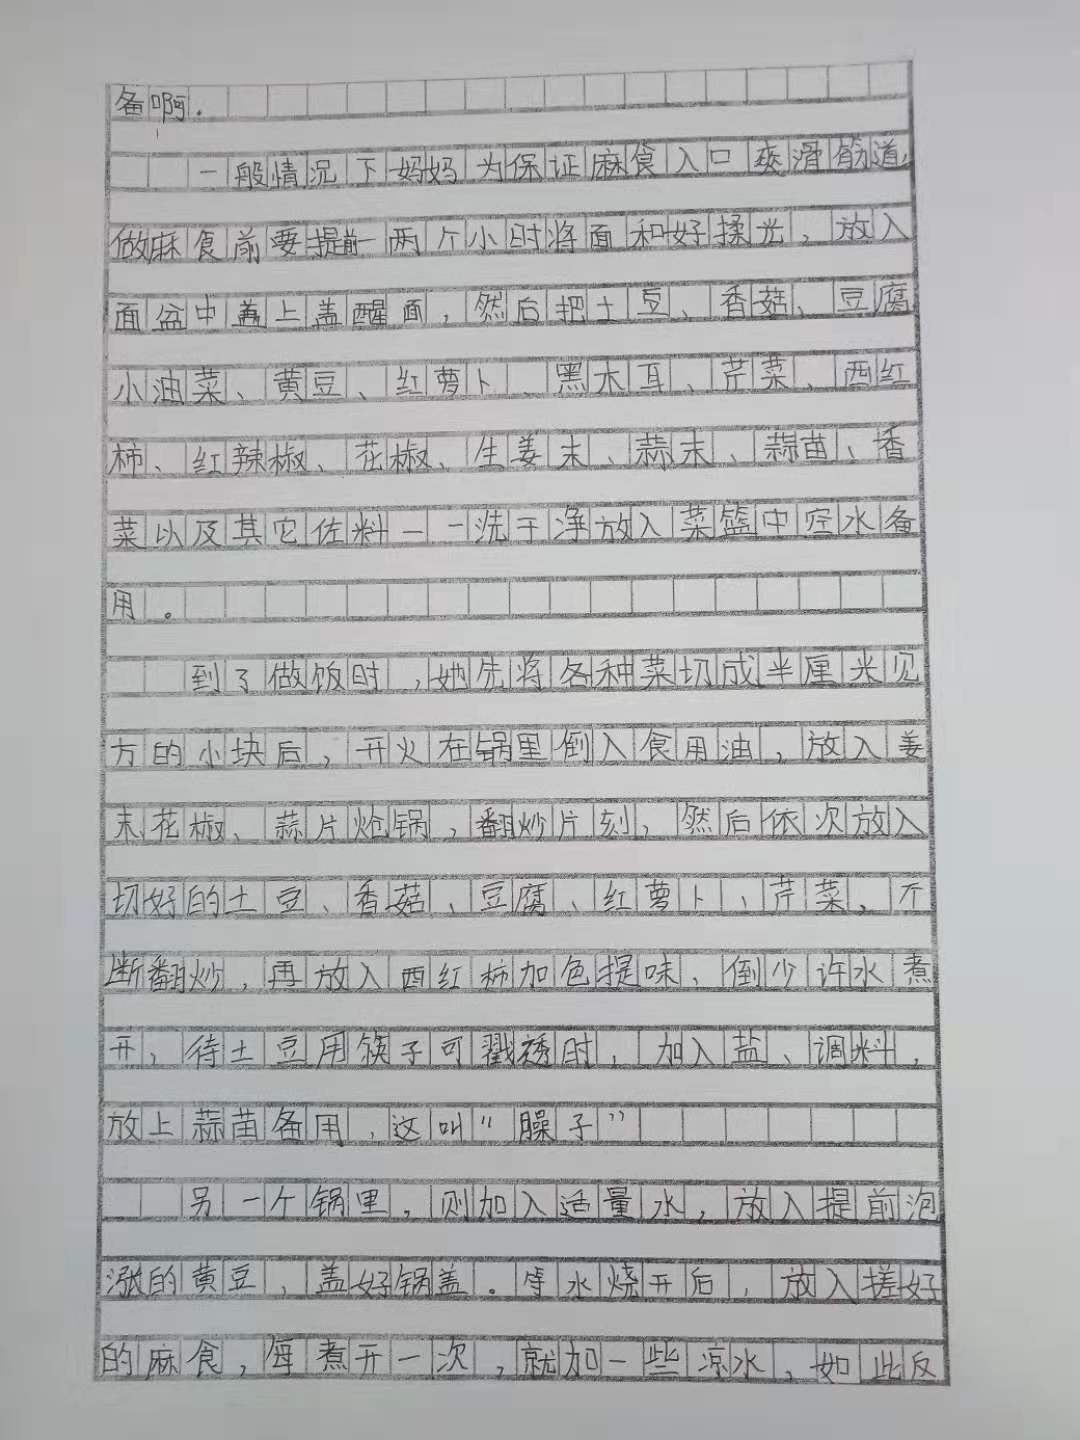 备啊.
一般情况下妈妈为保证麻食入口爽滑筋道,
做麻食前要提前一两个小时将面和好揉光，放入
面盆中盖上盖醒面，然后把土豆、香菇、豆腐
小油菜、黄豆、红萝卜、黑木耳、芹菜、西红
柿、红辣椒、花椒、生姜末、蒜末、蒜苗、香
菜以及其它佐料一一洗干净放入菜篮中空水备
用。
到了做饭时，她先将各种菜切成半厘米见
方的小块后，开火在锅里倒入食用油，放入姜
末花椒、蒜片炝锅，翻炒片刻，然后依次放入
切好的土豆、香菇、豆腐、红萝卜、芹菜，不
断翻炒，再放入西红柿加色提味、倒少许水煮
开，待土豆用筷子可戳透时，加入盐、调料，
放上蒜苗备用，这叫“臊子”
另一个锅里，则加入适量水，放入提前泡
涨的黄豆，盖好锅盖。等水烧开后，放入搓好
的麻食，每煮开一次，就加一些凉水，如此反